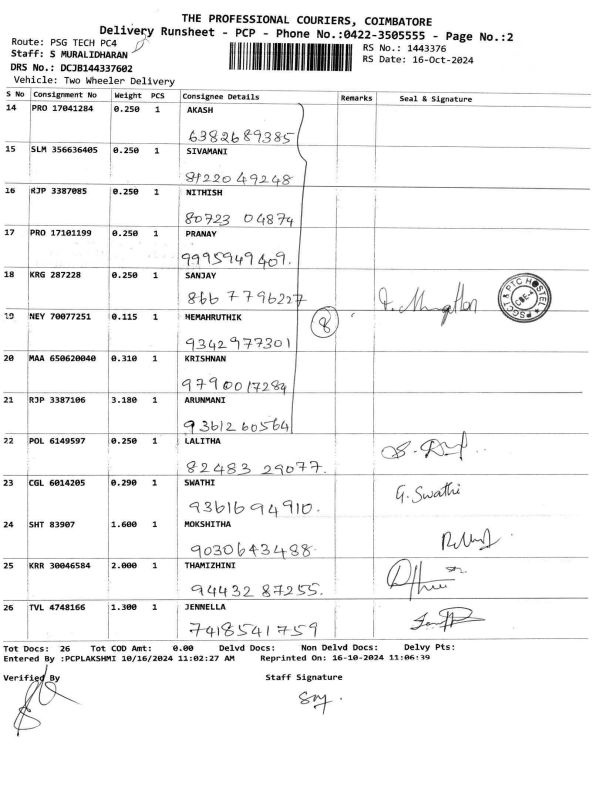 THE PROFESSIONAL COURIERS, COIMBATORE
Delivery Runsheet - PCP - Phone No.:0422-3505555 - Page No.:2
Route: PSG TECH PC4
RS No.: 1443376
Staff: S MURALIDHARAN
RS Date: 16-Oct-2024
DRS No.: DCJB144337602
Vehicle: Two Wheeler Delivery
S No Consignment No Weight PCS Consignee Details Remarks Seal & Signature
14 PRO 17041284 0.250 1 AKASH
6382689385
15 SLM 356636405 0.250 1 SIVAMANI
81220 49248
16 RJP 3387085 0.250 1 NITHISH
80723 04874
17 PRO 17101199 0.250 1 PRANAY
9995949409.
18 KRG 287228 0.250 1 SANJAY
866 7796227
PSGCT & PTC HOSTEL
CBE-4
19 NEY 70077251 0.115 1 HEMAHRUTHIK
8
9342977301
20 MAA 650620040 0.310 1 KRISHNAN
9790017284
21 RJP 3387106 3.180 1 ARUNMANI
9361260564
22 POL 6149597 0.250 1 LALITHA
82483 29077.
23 CGL 6014205 0.290 1 SWATHI
G. Swathi
9361694910.
24 SHT 83907 1.600 1 MOKSHITHA
9030643488.
25 KRR 30046584 2.000 1 THAMIZHINI
94432 87255.
26 TVL 4748166 1.300 1 JENNELLA
7418541759
Tot Docs: 26 Tot COD Amt: 0.00 Delvd Docs: Non Delvd Docs: Delvy Pts:
Entered By :PCPLAKSHMI 10/16/2024 11:02:27 AM Reprinted On: 16-10-2024 11:06:39
Verified By Staff Signature